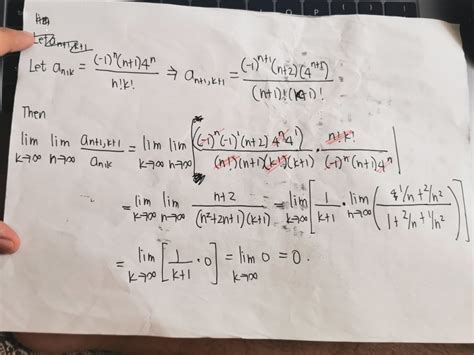 Let a_{n+1,k+1}
Let a_{n,k} = \frac{(-1)^n (n+1) 4^n}{n! k!} ⇒ a_{n+1,k+1} = \frac{(-1)^{n+1} (n+2)(4^{n+1})}{(n+1)! (k+1)!}
Then
\lim_{k→∞} \lim_{n→∞} \frac{a_{n+1,k+1}}{a_{n,k}} = \lim_{k→∞} \lim_{n→∞} \left| \frac{(-1)^n (-1)^1 (n+2) 4^n 4^1}{(n!)(n+1)(k!)(k+1)} \cdot \frac{n! k!}{(-1)^n (n+1) 4^n} \right|
= \lim_{k→∞} \lim_{n→∞} \frac{n+2}{(n^2+2n+1)(k+1)} = \lim_{k→∞} \left[ \frac{1}{k+1} \cdot \lim_{n→∞} \left( \frac{1/n + 2/n^2}{1 + 2/n + 1/n^2} \right) \right]
= \lim_{k→∞} \left[ \frac{1}{k+1} \cdot 0 \right] = \lim_{k→∞} 0 = 0.